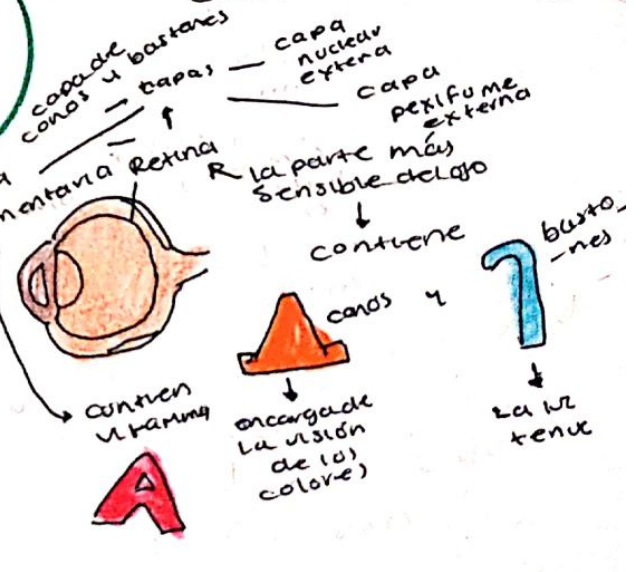 capa de
conos y bastones
capas
capa
nuclear
extera
capa
pexifume
externa
mentaria
Retina
R la parte más
sensible del ojo
contiene
conos y
basto
-nes
contien
vitamina
A
encargade
la visión
de los
colores
La luz
tenue